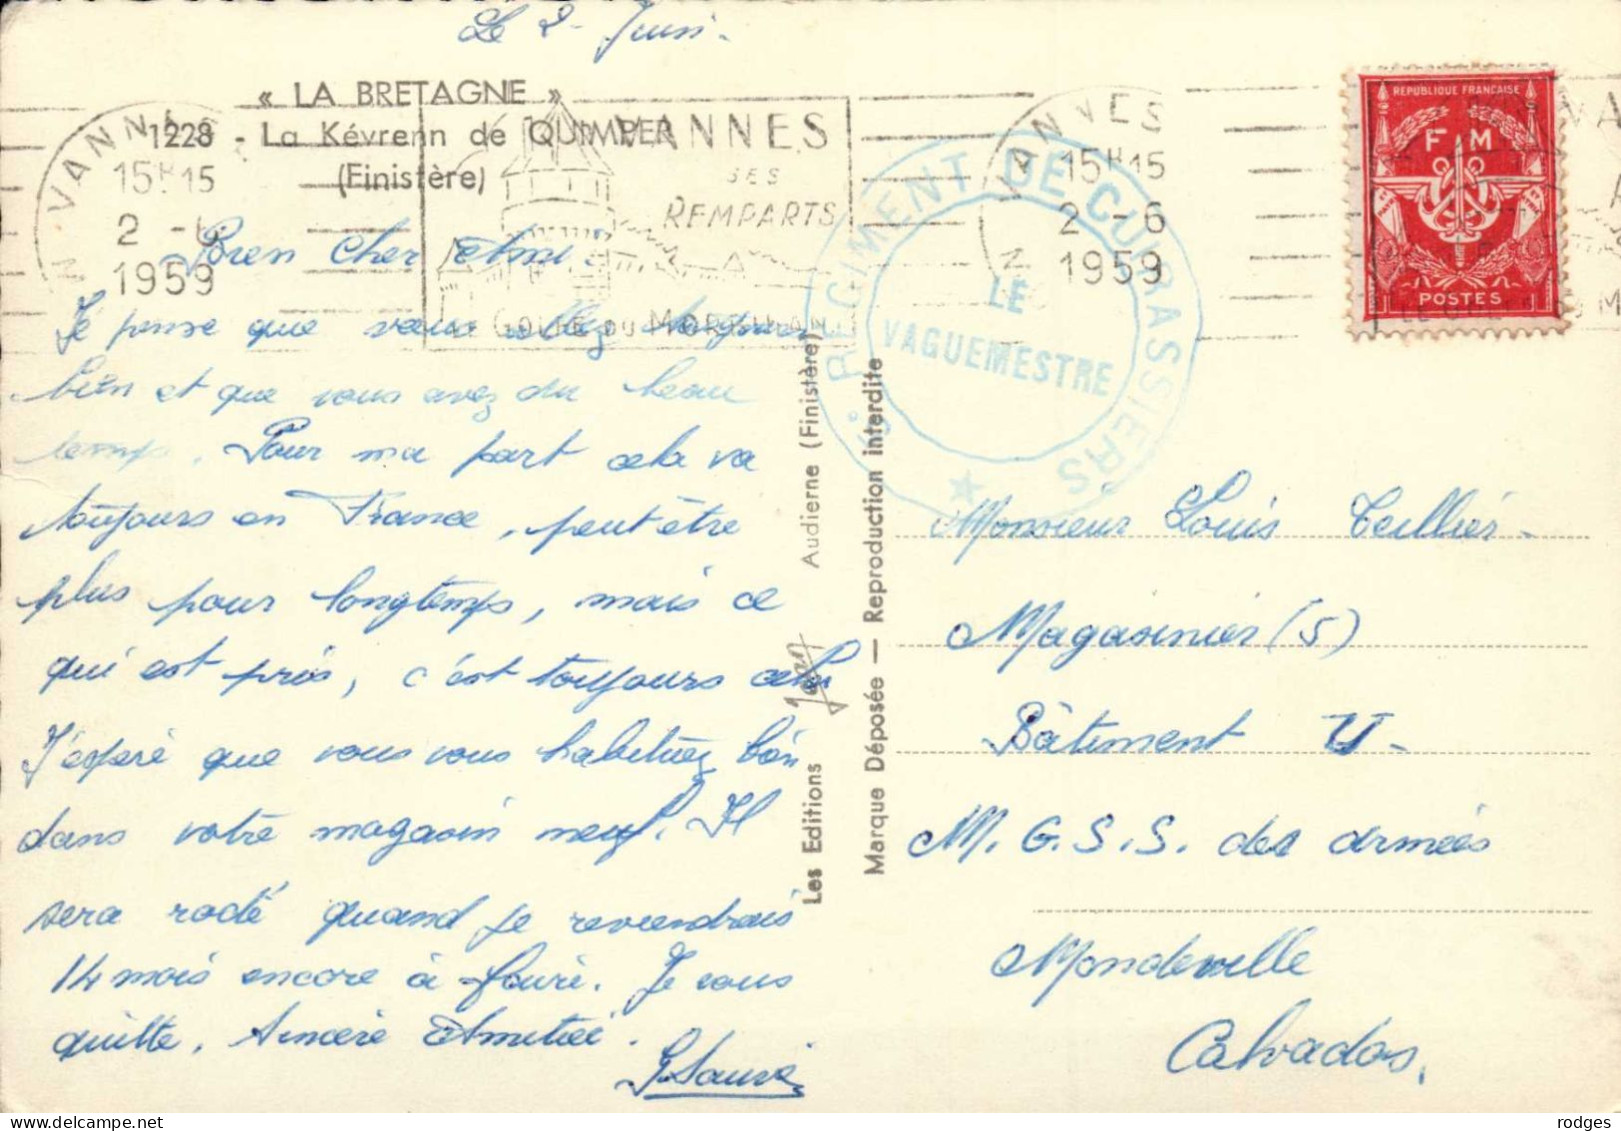 Le 2 Juin.
« LA BRETAGNE »
1228 - La Kévrenn de QUIMPER
(Finistère)
VANNES
15H15
2 - 6
1959
VANNES
SES
REMPARTS
LE GOLFE DU MORBIHAN
VANNES
15H15
2 - 6
1959
REGIMENT DE CUIRASSIERS
LE
VAGUEMESTRE
REPUBLIQUE FRANÇAISE
F M
POSTES
Bien Cher Ami.
Je pense que vous allez toujours
bien et que vous avez du beau
temps. Pour ma part cela va
toujours en France, peut être
plus pour longtemps, mais ce
qui est pris, c'est toujours cela
J'espère que vous vous habituez bien
dans votre magasin neuf. Il
sera rodé quand je reviendrais
14 mois encore à faire. Je vous
quitte, Sincère Amitié.
Les Editions Jean Audierne (Finistère)
Marque Déposée — Reproduction interdite
Monsieur Louis Teillier
Magasinier (S)
Bâtiment U.
M. G. S. S. des armées
Mondeville
Calvados.
rodges